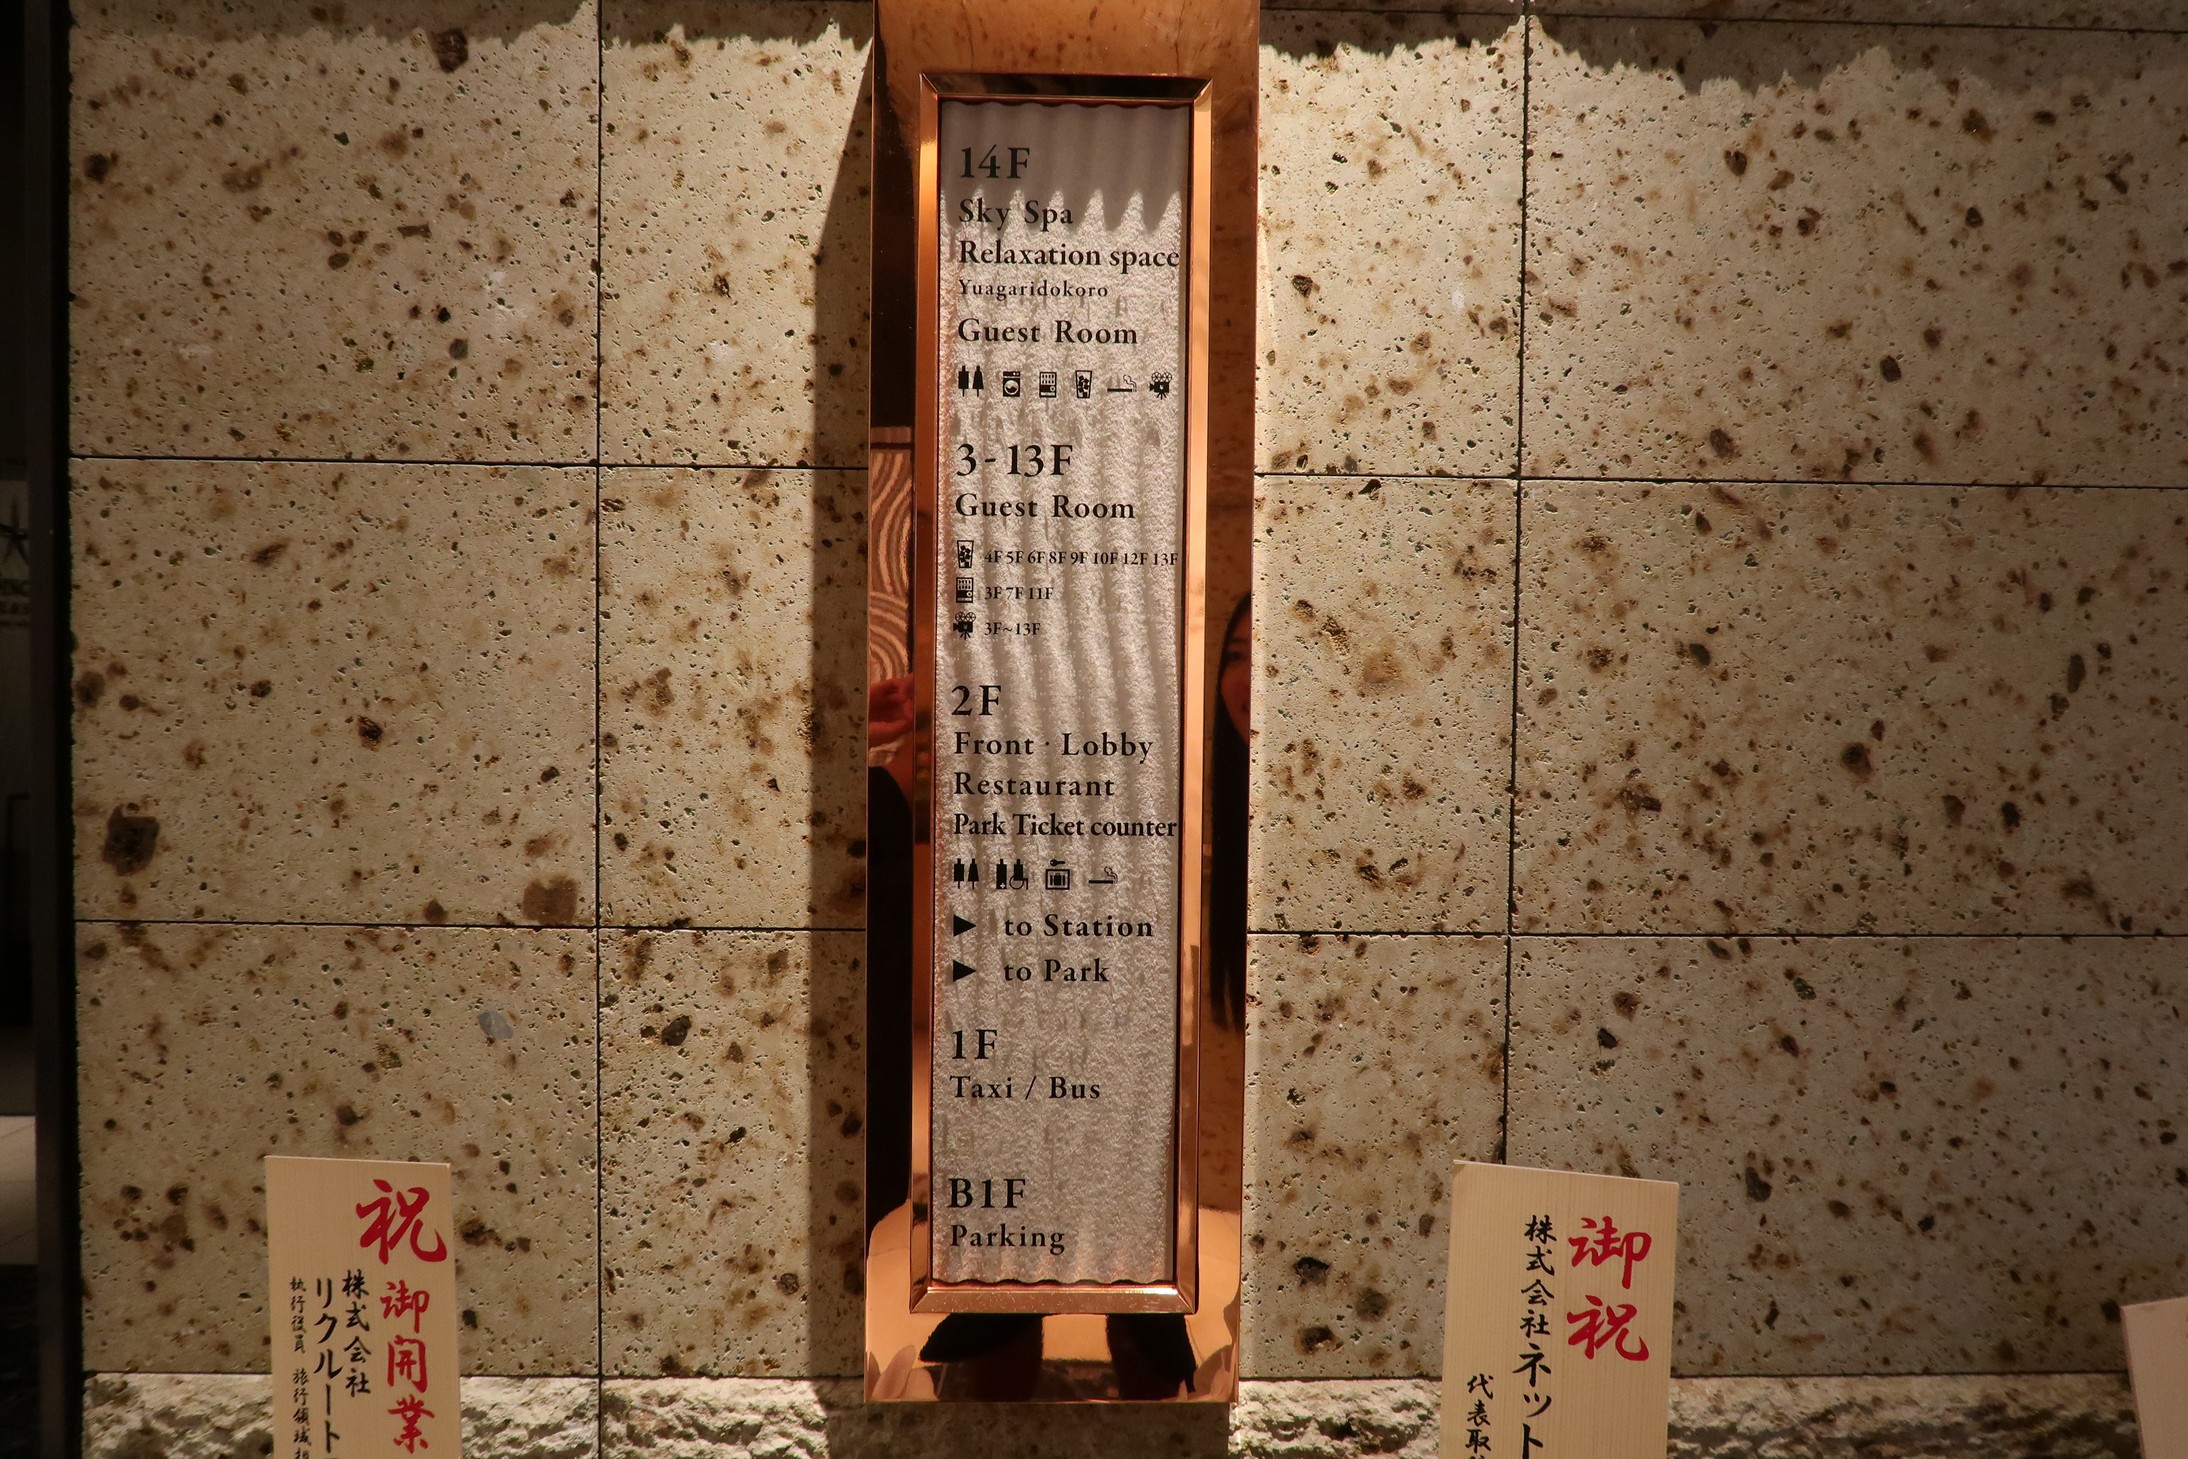 14F
Sky Spa
Relaxation space
Yuagaridokoro
Guest Room
3-13F
Guest Room
4F 5F 6F 8F 9F 10F 12F 13F
3F 7F 11F
3F~13F
2F
Front · Lobby
Restaurant
Park Ticket counter
▶ to Station
▶ to Park
1F
Taxi / Bus
B1F
Parking
祝
御開業
株式会社
リクルート
執行役員 旅行領域担
御祝
株式会社ネット
代表取